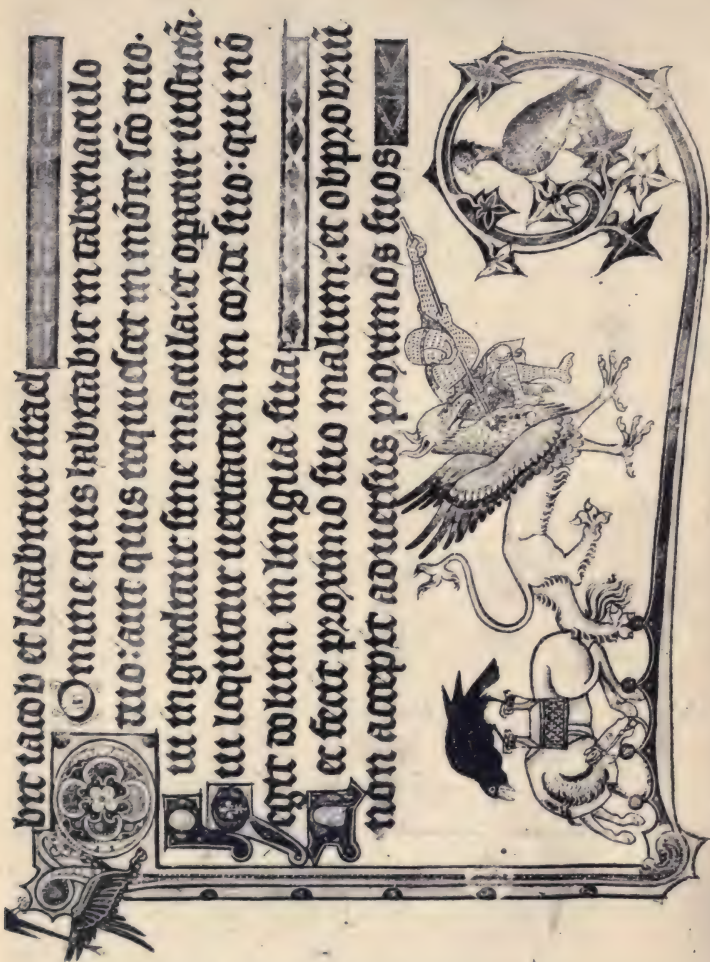 bit iacob et letabitur israel
Domine quis habitabit in tabernaculo
tuo: aut quis requiescet in mōte sc̄o tuo.
Qui ingreditur sine macula: et op̲atur iustitiā.
Qui loquitur ueritatem in corde suo: qui nō
egit dolum in lingua sua
Nec fecit proximo suo malum: et obprobriū
non accepit aduersus proximos suos